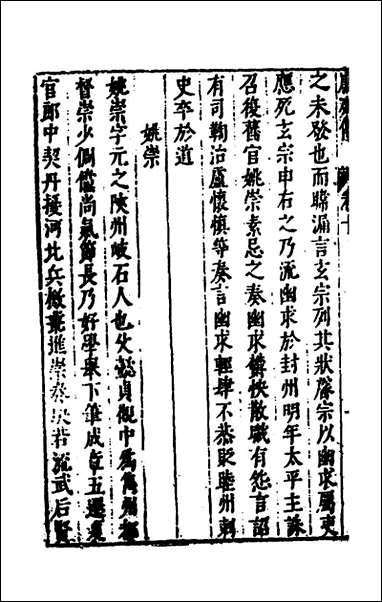 之未發也而暐漏言玄宗列其狀睿宗以幽求屬吏
應死玄宗申右之乃流幽求於封州明年太平主誅
召復舊官姚崇素忌之奏幽求鬱怏散職有怨言詔
有司鞫治盧懷慎等奏言幽求輕肆不恭貶睦州刺
史卒於道
姚崇
姚崇字元之陝州硤石人也父懿貞觀中爲嶲州都
督崇少倜儻尚氣節長乃好學舉下筆成章五遷夏
官郎中契丹擾河北兵檄叢進崇奏決若流武后賢